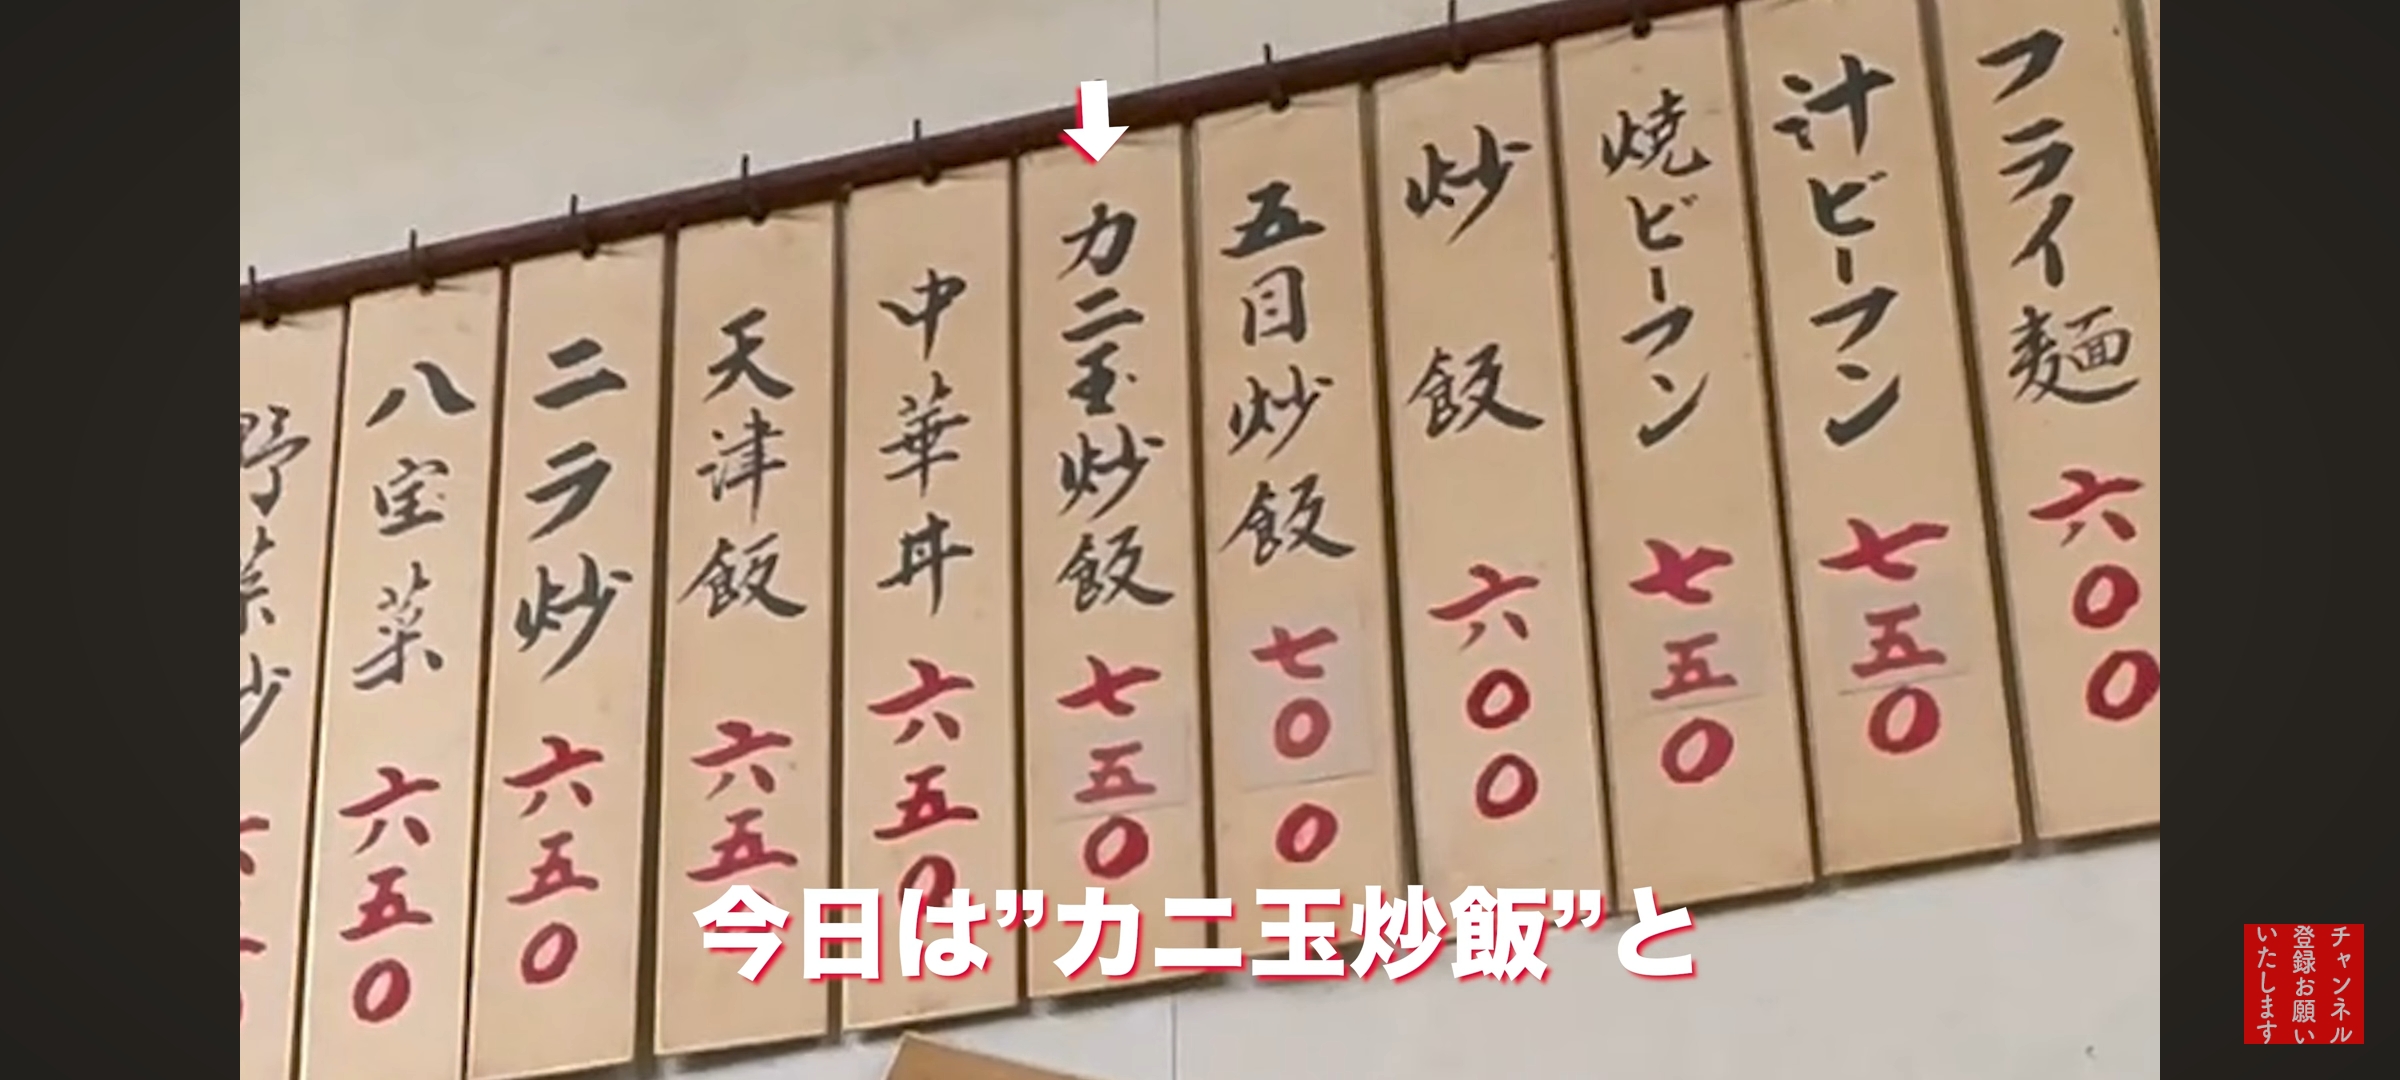 フライ麺 六〇〇
汁ビーフン 七五〇
焼ビーフン 七五〇
炒飯 六〇〇
五目炒飯 七〇〇
カニ玉炒飯 七五〇
中華丼 六五〇
天津飯 六五
ニラ炒 六五〇
八宝菜 六五〇
野菜炒
今日は”カニ玉炒飯”と
チャンネル
登録お願い
いたします